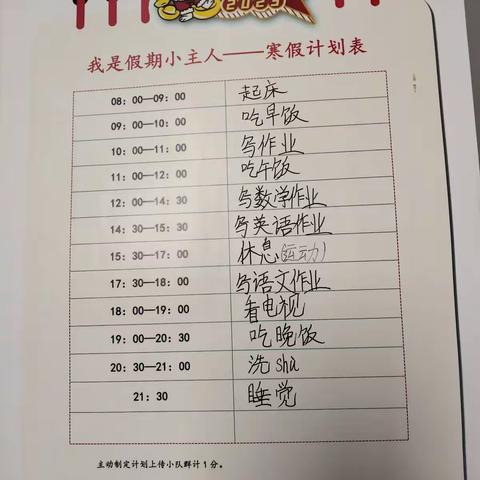 2023
我是假期小主人——寒假计划表
08：00—09：00 起床
09：00—10：00 吃早饭
10：00—11：00 写作业
11：00—12：00 吃午饭
12：00—14：30 写数学作业
14：30—15：30 写英语作业
15：30—17：00 休息(运动)
17：30—18：00 写语文作业
18：00—19：00 看电视
19：00—20：30 吃晚饭
20：30—21：00 洗shù
21：30 睡觉
主动制定计划上传小队群计1分。